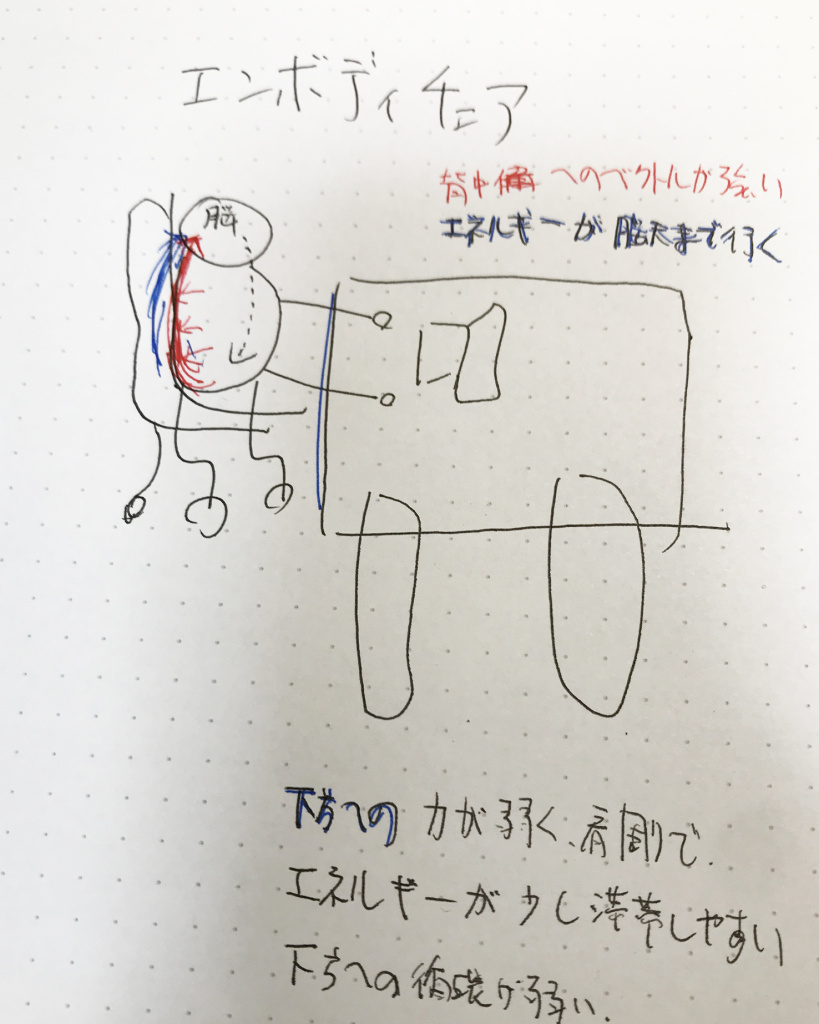 エンボディチェア
背中側へのベクトルが強い
エネルギーが脳天まで行く
脳
下方への力が弱く、肩周りで、
エネルギーが少し滞りしやすい
下方への循環が弱い.